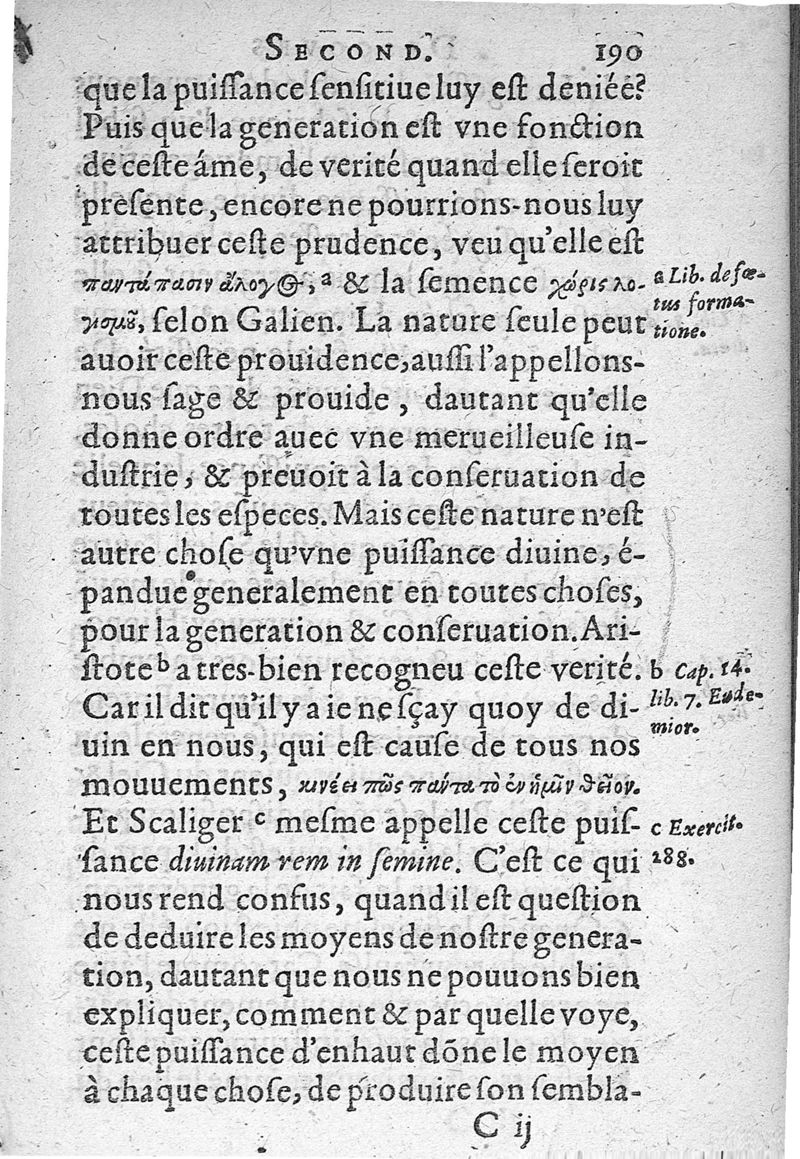 SECOND. 190
que la puiſſance ſenſitiue luy eſt deniéé?
Puis que la generation eſt vne fonction
de ceſte áme, de verité quand elle ſeroit
preſente, encore ne pourrions-nous luy
attribuer ceſte prudence, veu qu'elle eſt
παντάπασιν ἄλογος, a & la ſemence χώρις λο-
γισμοῦ, ſelon Galien. La nature ſeule peut
auoir ceſte prouidence, auſſi l'appellons-
nous ſage & prouide, dautant qu'elle
donne ordre auec vne merueilleuſe in-
duſtrie, & preuoit à la conſeruation de
toutes les eſpeces. Mais ceſte nature n'eſt
autre choſe qu'vne puiſſance diuine, é-
pandue generalement en toutes choſes,
pour la generation & conſeruation. Ari-
ſtote b a tres-bien recogneu ceſte verité.
Car il dit qu'il y a ie ne ſçay quoy de di-
uin en nous, qui eſt cauſe de tous nos
mouuements, κινέει πῶς παντα τὸ ἐν ἡμῖν θεῖον.
Et Scaliger c meſme appelle ceſte puiſ-
ſance diuinam rem in ſemine. C'eſt ce qui
nous rend confus, quand il eſt queſtion
de deduire les moyens de noſtre genera-
tion, dautant que nous ne pouuons bien
expliquer, comment & par quelle voye,
ceſte puiſſance d'enhaut dõne le moyen
à chaque choſe, de produire ſon ſembla-
C ij
a Lib. de fœ-
tus forma-
tione.
b Cap. 14.
lib. 7. Eude-
mior.
c Exercit.
188.